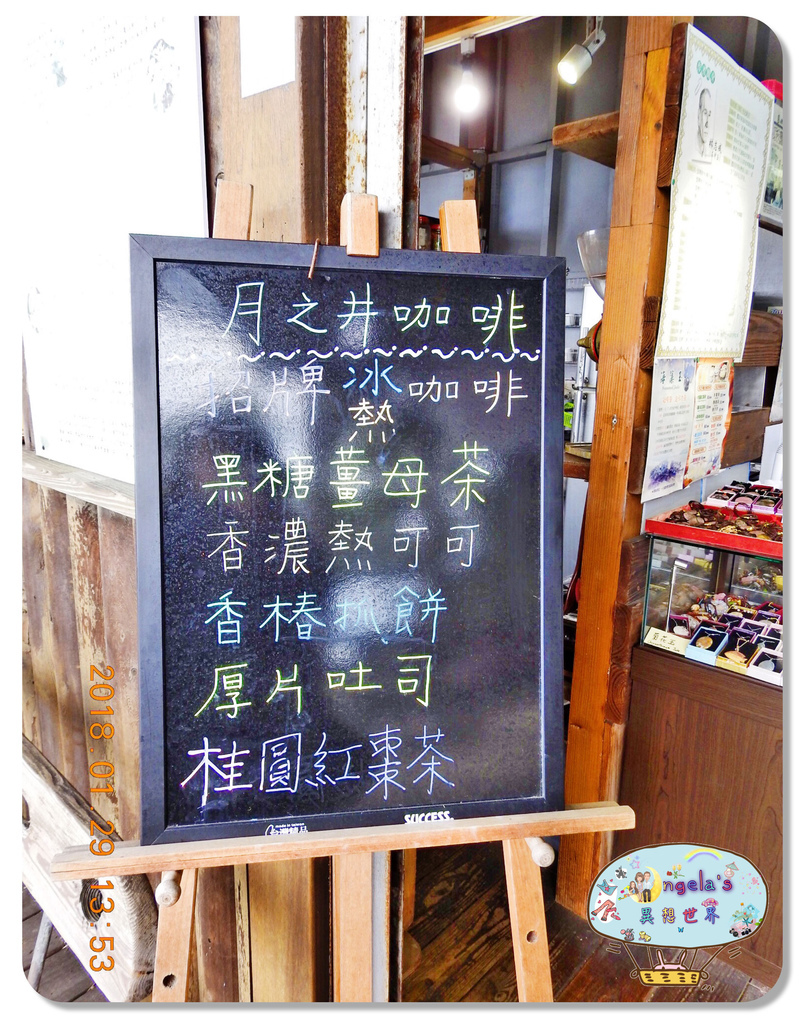 月之井咖啡
招牌冰熱咖啡
黑糖薑母茶
香濃熱可可
香椿抓餅
厚片吐司
桂圓紅棗茶
SUCCESS.
2018.01.29 13:53
Angela's
異想世界